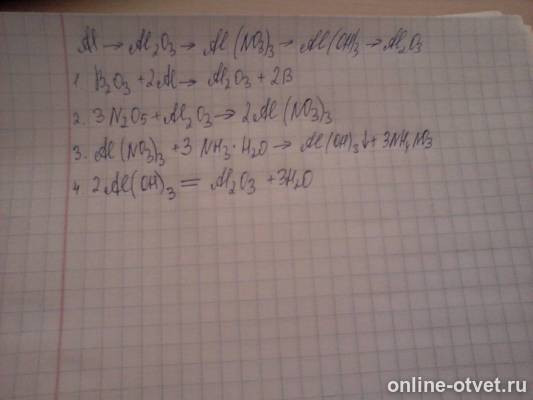 Al → Al₂O₃ → Al(NO₃)₃ → Al(OH)₃ → Al₂O₃
1 B₂O₃ + 2Al → Al₂O₃ + 2B
2. 3N₂O₅ + Al₂O₃ → 2Al(NO₃)₃
3. Al(NO₃)₃ + 3NH₃·H₂O → Al(OH)₃↓ + 3NH₄NO₃
4. 2Al(OH)₃ = Al₂O₃ + 3H₂O
online-otvet.ru